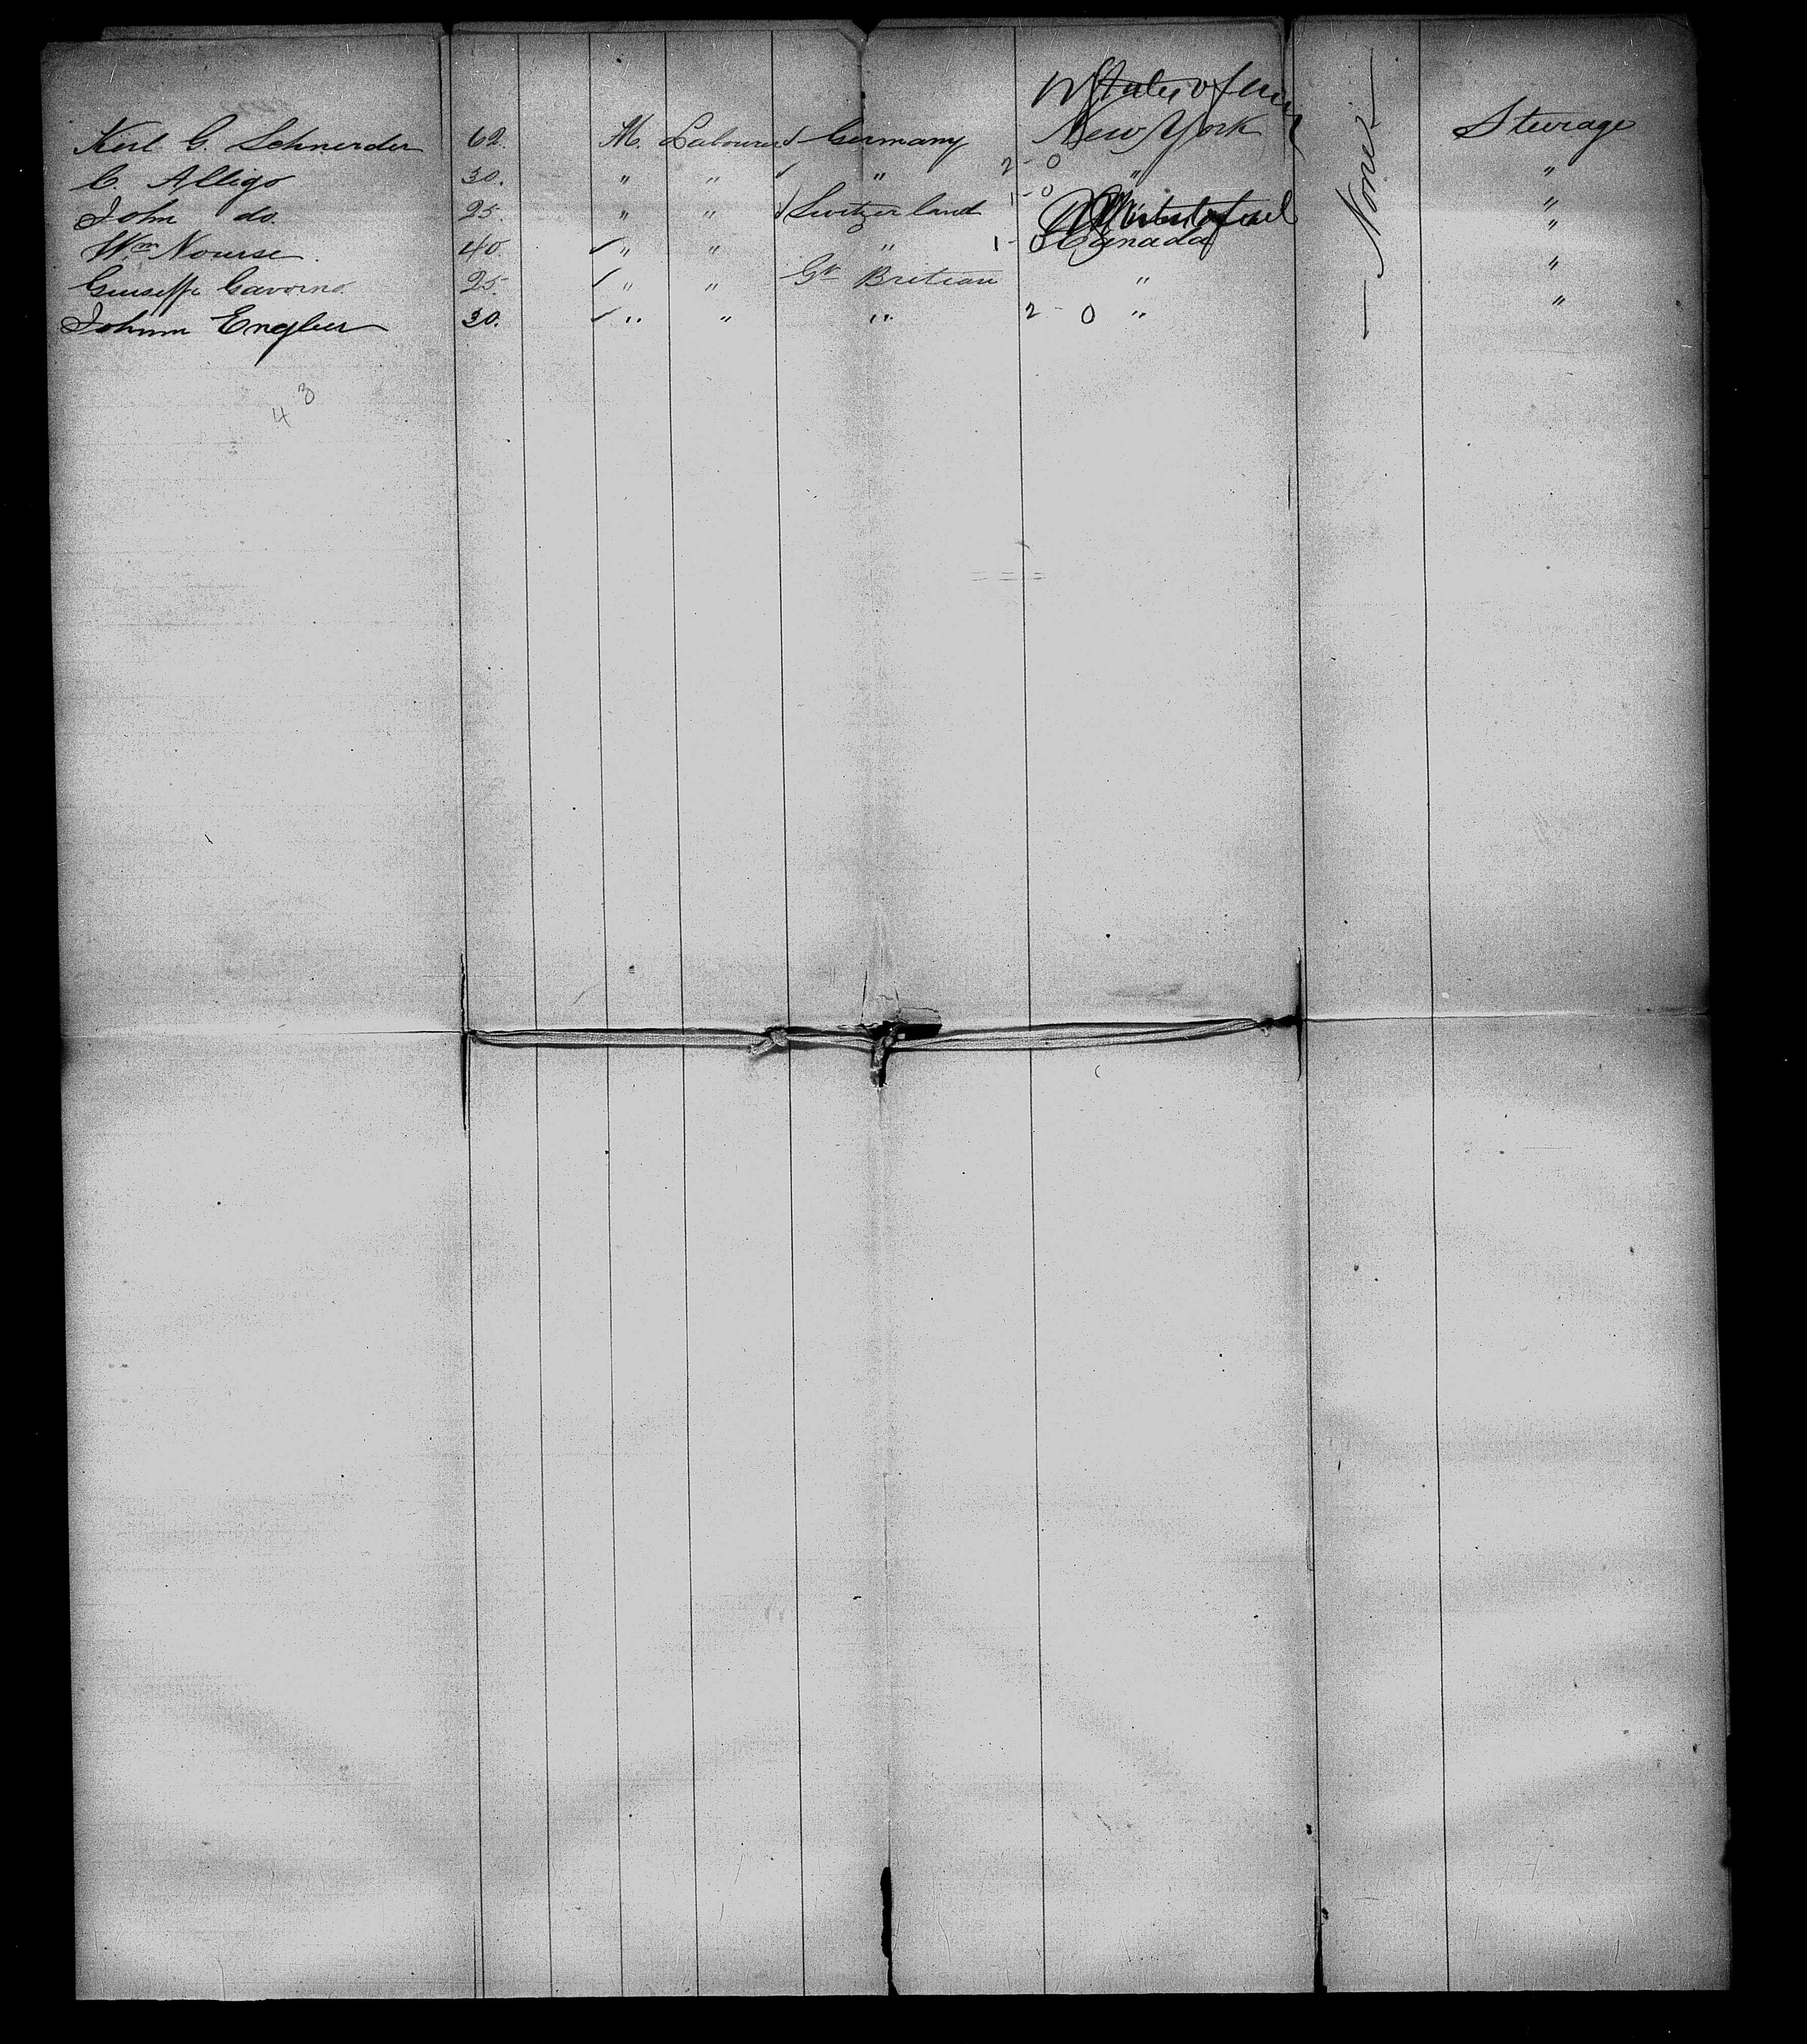 U States of Am
Kerl G. Schneider 62. M. Labourer Germany New York Steerage
C. Alligo 30. " " " 2-0 " "
John do. 25. " " Switzerland 1-0 "
Wm Nourse. 40. " " " 1-0 Canada "
Guiseffe Cavorno 25. " " Gt Britian " "
Johnm Engler 30. " " " 2-0 " "
— None —
43